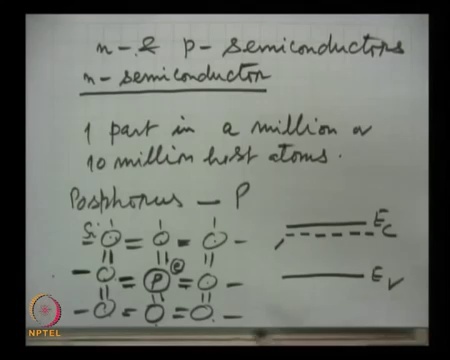 n- & p- semiconductors
n- semiconductor
1 part in a million or
10 million host atoms.
Posphorus — P
Si
e
P
Ec
Ev
NPTEL